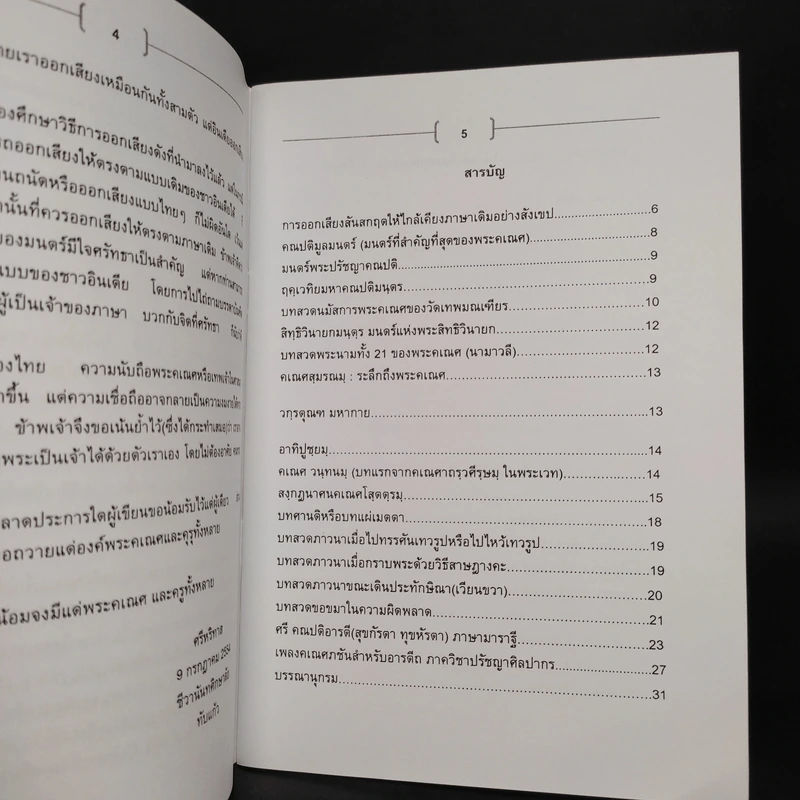 4
ายเราออกเสียงเหมือนกันทั้งสามตัว
องศึกษาวิธีการออกเสียงดังที่นำมาลงไว้แล้ว
ถออกเสียงให้ตรงตามแบบเดิมของชาวอินเดียได้
นถนัดหรือออกเสียงแบบไทยๆ ก็ไม่ผิดอันใด
านั้นที่ควรออกเสียงให้ตรงตามภาษาเดิม
ของมนตร์มีใจศรัทธาเป็นสำคัญ
แบบของชาวอินเดีย โดยการไปไถ่ถาม
ผู้เป็นเจ้าของภาษา บวกกับจิตที่ศรัทธา
องไทย ความนับถือพระคเณศหรือเทพเจ้า
าขึ้น แต่ความเชื่อถืออาจกลายเป็นความงมงายได้
ข้าพเจ้าจึงขอเน้นย้ำไว้(ซึ่งได้กระทำเสมอ)ว่า
พระเป็นเจ้าได้ด้วยตัวเราเอง โดยไม่ต้องอาศัย
ลาดประการใดผู้เขียนขอน้อมรับไว้แต่ผู้เดียว
อถวายแด่องค์พระคเณศและคุรุทั้งหลาย
น้อมจงมีแด่พระคเณศ และครูทั้งหลาย
ศรีหริทาส
9 กรกฎาคม 2554
ทับแก้ว
5
สารบัญ
การออกเสียงสันสกฤตให้ใกล้เคียงภาษาเดิมอย่างสังเขป.................6
คณปติมูลมนตร์ (มนตร์ที่สำคัญที่สุดของพระคเณศ)....................8
มนตร์พระปรัชญาคณปติ...............................................9
ฤคฺเวทิยมหาคณปติมนฺตร..............................................9
บทสวดนมัสการพระคเณศของวัดเทพมณเฑียร.........................10
สิทฺธิวินายกมนฺตฺร มนตร์แห่งพระสิทธิวินายก...........................12
บทสวดพระนามทั้ง 21 ของพระคเณศ (นามาวลี).......................12
คเณศสฺมรณมฺ : ระลึกถึงพระคเณศ....................................13
วกฺรตุณฑ มหากาย....................................................13
อาทิปูชฺยมฺ............................................................14
คเณศ วนฺทนมฺ (บทแรกจากคเณศาถรฺวศีรฺษมฺ ในพระเวท)..............14
สงฺกฏนาศนคเณศโสฺตตฺรมฺ.............................................15
บทศานติหรือบทแผ่เมตตา............................................18
บทสวดภาวนาเมื่อไปทรรศันเทวรูปหรือไปไหว้เทวรูป..................19
บทสวดภาวนาเมื่อกราบพระด้วยวิธีสาษฎางคะ........................19
บทสวดภาวนาขณะเดินประทักษิณา(เวียนขวา)........................20
บทสวดขอขมาในความผิดพลาด......................................21
ศรี คณปติอารตี(สุขกัรตา ทุขหัรตา) ภาษามาราฐี......................23
เพลงคเณศภชันสำหรับอารตีถ ภาควิชาปรัชญาศิลปากร................27
บรรณานุกรม..........................................................31